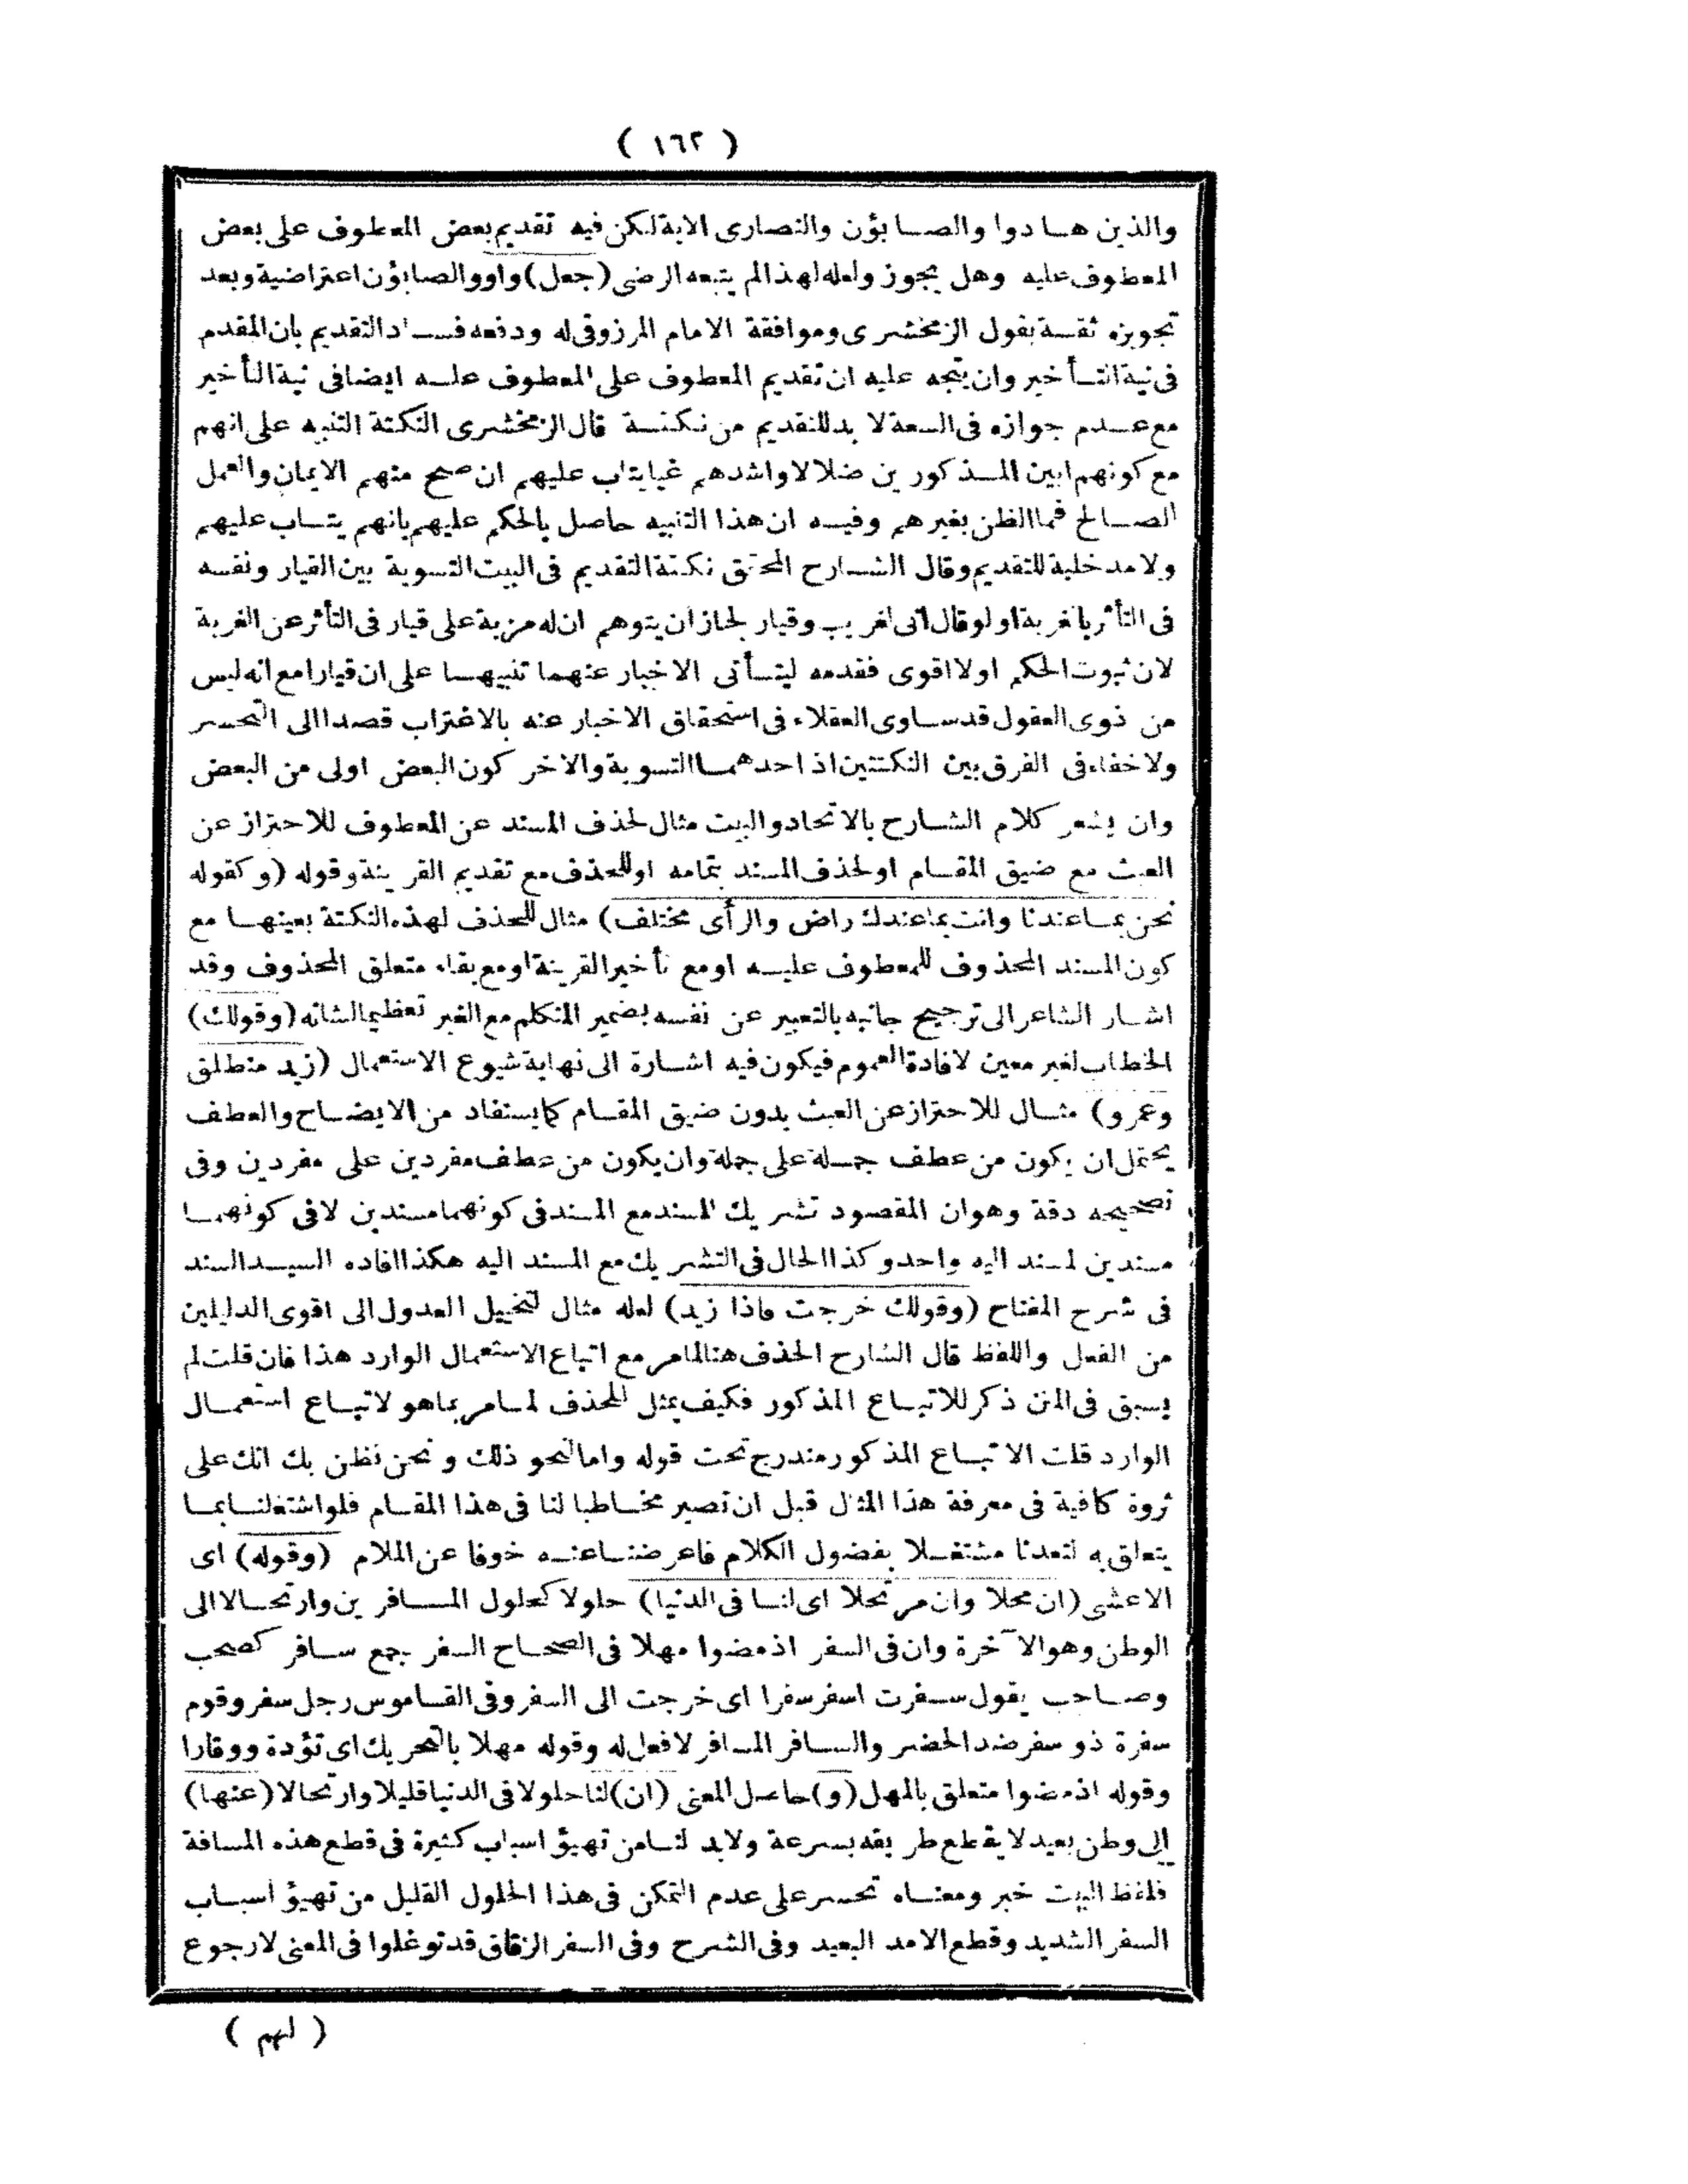 ( ١٦٢ )
والذين هادوا والصابؤن والنصارى الاية لكن فيه تقديم بعض المعطوف على بعض
المعطوف عليه وهل يجوز ولعله لهذا لم يتبعه الرضى (جعل) واو والصابؤن اعتراضية وبعد
تجويزه ثقة بقول الزمخشرى وموافقة الامام المرزوقى له ودفعه فساد التقديم بان المقدم
فى نية التأخير وان يتجه عليه ان تقديم المعطوف على المعطوف عليه ايضا فى نية التأخير
مع عدم جوازه فى السعة لا بد للتقديم من نكتة قال الزمخشرى النكتة التنبيه على انهم
مع كونهم ابين المذكورين ضلالا واشدهم غيا يتاب عليهم ان صح منهم الايمان والعمل
الصالح فما الظن بغيرهم وفيه ان هذا التنبيه حاصل بالحكم عليهم بانهم يتاب عليهم
ولا مدخلية للتقديم وقال الشارح المحقق نكتة التقديم فى البيت التسوية بين القيار ونفسه
فى التأثر بالغربة اولو قال انى لغريب وقيار لجاز ان يتوهم ان له مزية على قيار فى التأثر عن الغربة
لان ثبوت الحكم اولا اقوى فقدمه ليتأتى الاخبار عنهما تنبيها على ان قيارا مع انه ليس
من ذوى العقول قد ساوى العقلاء فى استحقاق الاخبار عنه بالاغتراب قصدا الى التحسر
ولا خفاء فى الفرق بين النكتتين اذ احدهما التسوية والاخر كون البعض اولى من البعض
وان يشعر كلام الشارح بالاتحاد والبيت مثال لحذف المسند عن المعطوف للاحتراز عن
العبث مع ضيق المقام او لحذف المسند بتمامه او للحذف مع تقديم القرينة وقوله (وكقوله
نحن بما عندنا وانت بما عندك راض والرأى مختلف) مثال للحذف لهذه النكتة بعينها مع
كون المسند المحذوف للمعطوف عليه او مع تأخير القرينة او مع بقاء متعلق المحذوف وقد
اشار الشاعر الى ترجيح جانبه بالتعبير عن نفسه بضمير المتكلم مع الغير تعظيما لشانه (وقولك)
الخطاب لغير معين لافادة العموم فيكون فيه اشارة الى نهاية شيوع الاستعمال (زيد منطلق
وعمرو) مثال للاحتراز عن العبث بدون ضيق المقام كما يستفاد من الايضاح والعطف
يحتمل ان يكون من عطف جملة على جملة وان يكون من عطف مفردين على مفردين وفى
تصحيحه دقة وهو ان المقصود تشريك المسند مع المسند فى كونهما مسندين لا فى كونهما
مسندين لمسند اليه واحد وكذا الحال فى التشريك مع المسند اليه هكذا افاده السيد السند
فى شرح المفتاح (وقولك خرجت فاذا زيد) لعله مثال لتخييل العدول الى اقوى الدليلين
من الفعل واللفظ قال الشارح الحذف هنا لما مر مع اتباع الاستعمال الوارد هذا فان قلت لم
يسبق فى المتن ذكر للاتباع المذكور فكيف يمثل للحذف لما مر بما هو لاتباع استعمال
الوارد قلت الاتباع المذكور مندرج تحت قوله واما لنحو ذلك ونحن نظن بك انك على
ثروة كافية فى معرفة هذا المثال قبل ان تصير مخاطبا لنا فى هذا المقام فلو اشتغلنا بما
يتعلق به لتعدنا مشتغلا بفضول الكلام فاعرضنا عنه خوفا عن الملام (وقوله) اى
الاعشى (ان محلا وان مرتحلا اى لنا فى الدنيا) حلولا كحلول المسافرين وارتحالا الى
الوطن وهو الآخرة وان فى السفر اذ مضوا مهلا فى الصحاح السفر جمع سافر كصحب
وصاحب يقول سفرت اسفر سفرا اى خرجت الى السفر وفى القاموس رجل سفر وقوم
سفرة ذو سفر ضد الحضر والسافر المسافر لا فعل له وقوله مهلا بالتحريك اى تؤدة ووقارا
وقوله اذ مضوا متعلق بالمهل (و) حاصل المعنى (ان) لنا حلولا فى الدنيا قليلا وارتحالا (عنها)
الى وطن بعيد لا يقطع طريقه بسرعة ولا بد لنا من تهيؤ اسباب كثيرة فى قطع هذه المسافة
فلفظ البيت خبر ومعناه تحسر على عدم التمكن فى هذا الحلول القليل من تهيؤ اسباب
السفر الشديد وقطع الامد البعيد وفى الشرح وفى السفر الرفاق قد توغلوا فى المعنى لا رجوع
( لهم )